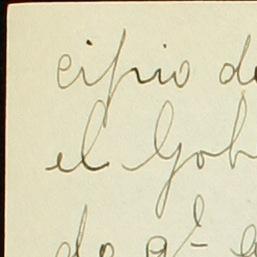 cipio de
el Gob
do qe